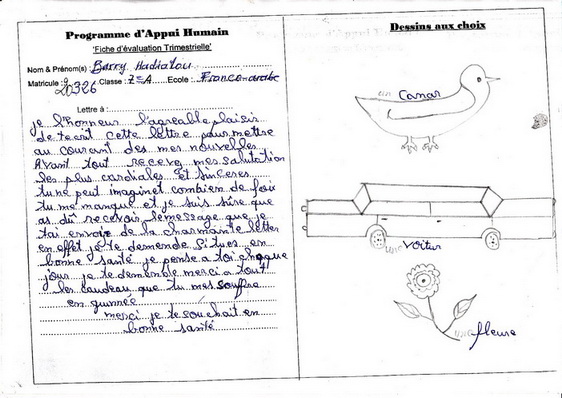 Programme d'Appui Humain
'Fiche d'évaluation Trimestrielle'
Nom & Prénom(s): Barry Hadiatou
Matricule: 20326 Classe: 7e A Ecole: Franco-arabe
Lettre à :
je l'honneur l'agreable plaisir
de tecrit cette lettre pour mettre
au courant des mes nouvelles
Avant tout recevez mes salutation
les plus cardiales Et sinceres
tu ne peut imaginet combien de fois
tu me manque et je suis sûre que
as dû recevoir le message que je
t'ai envoié de la charmante letter
en effet je te demende si tu es en
bonne santé je pense a toi chaque
jour je te demende merci a tout
les caudeau que tu mes souffre
en guinnée
merci je te souchait en
bonne santé
Dessins aux choix
un Canar
une voitur
une fleure